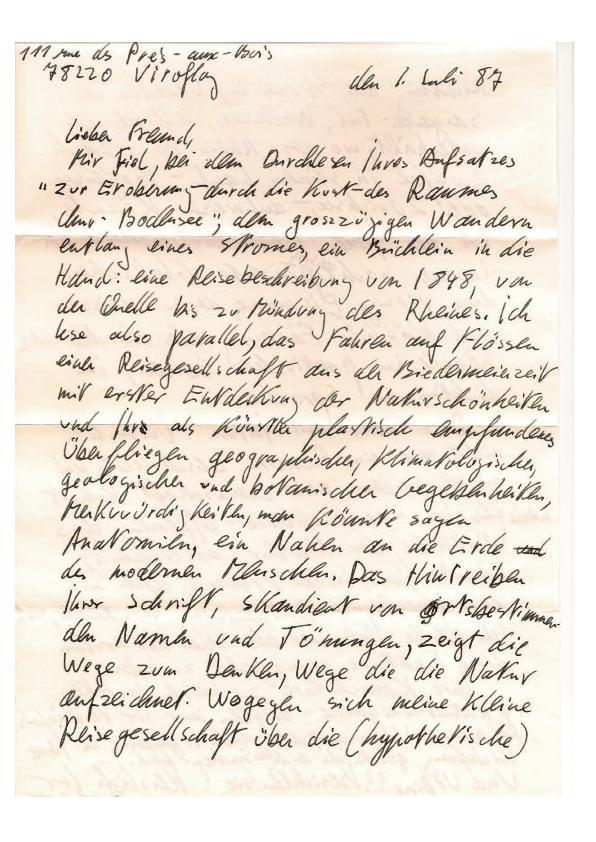 111 rue des Prés-aux-Bois
78220 Viroflay den 1. Juli 87
Lieber Freund,
Mir fiel, bei dem Durchlesen Ihres Aufsatzes
"zur Eroberung durch die Kunst des Raumes
Chur-Bodensee", dem groszzügigen Wandern
entlang eines Stromes, ein Büchlein in die
Hand: eine Reisebeschreibung von 1848, von
der Quelle bis zur Mündung des Rheines. Ich
lese also parallel, das Fahren auf Flössen
einer Reisegesellschaft aus der Biedermeierzeit
mit erster Entdeckung der Naturschönheiten
und Ihr als Künstler plastisch empfundenes
Überfliegen geographischer, klimatologischer,
geologischer und botanischer Gegebenheiten,
Merkwürdigkeiten, man könnte sagen
Anatomien, ein Nahen an die Erde
des modernen Menschen. Das Hintreiben
Ihrer Schrift, skandiert von ortsbestimmen-
den Namen und Tönungen, zeigt die
Wege zum Denken, Wege die die Natur
aufzeichnet. Wogegen sich meine kleine
Reisegesellschaft über die (hypothetische)